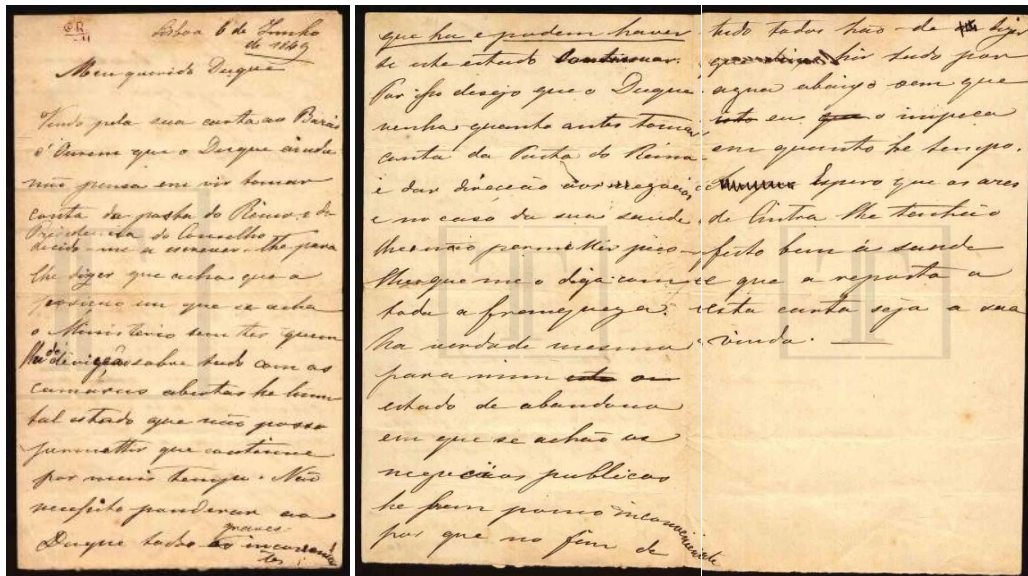 Lisboa 6 de Junho
de 1869
Meu querido Duque
Vendo pela sua carta ao Barão
d'Ourem que o Duque ainda
não pensa em vir tomar
conta da pasta do Reino e da
Presidencia do Conselho
decido-me a escrever-lhe para
lhe dizer que acho que a
posição em que se acha
o Ministerio sem ter quem
lhe dê direcção sobre tudo com as
camaras abertas he hum
tal estado que não posso
permettir que continue
por mais tempo. Não
necessito ponderar ao
Duque todos os graves inconvenientes
que ha e podem haver
se este estado continuar.
Por isso desejo que o Duque
venha quanto antes tomar
conta da Pasta do Reino
e dar direcção aos negocios
e no caso da sua saude
lhe não permetter peço-
lhe que me o diga com
toda a franqueza.
Na verdade mesmo
para mim o
estado de abandono
em que se achão os
negocios publicos
he bem pouco inconveniente
por que no fim de
tudo todos hão-de dizer
hir tudo por
agua abaixo sem que
eu o impeça
em quanto he tempo.
Espero que os ares
de Cintra lhe tenhão
feito bem á saude
e que a reposta a
esta carta seja a sua
vinda.